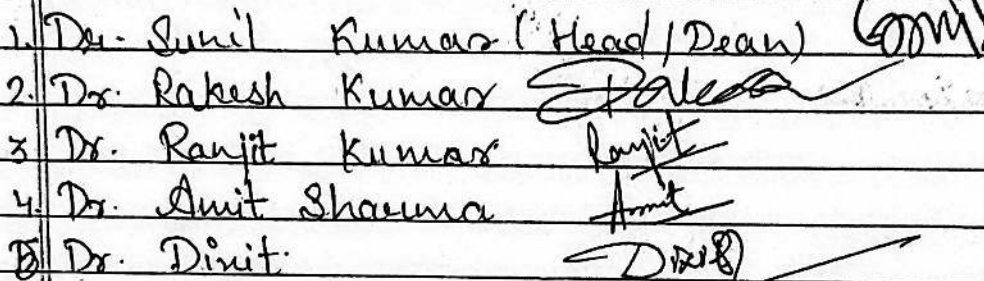 1. Dr. Sunil Kumar (Head/Dean)
2. Dr. Rakesh Kumar
3 Dr. Ranjit Kumar Ranjit
4. Dr. Amit Sharma Amit
5 Dr. Dixit.